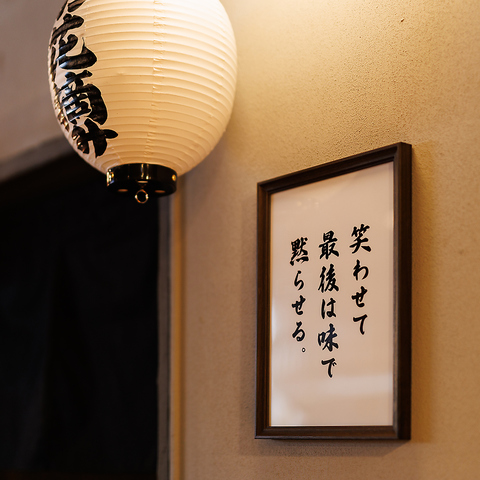 笑わせて
最後は味で
黙らせる。